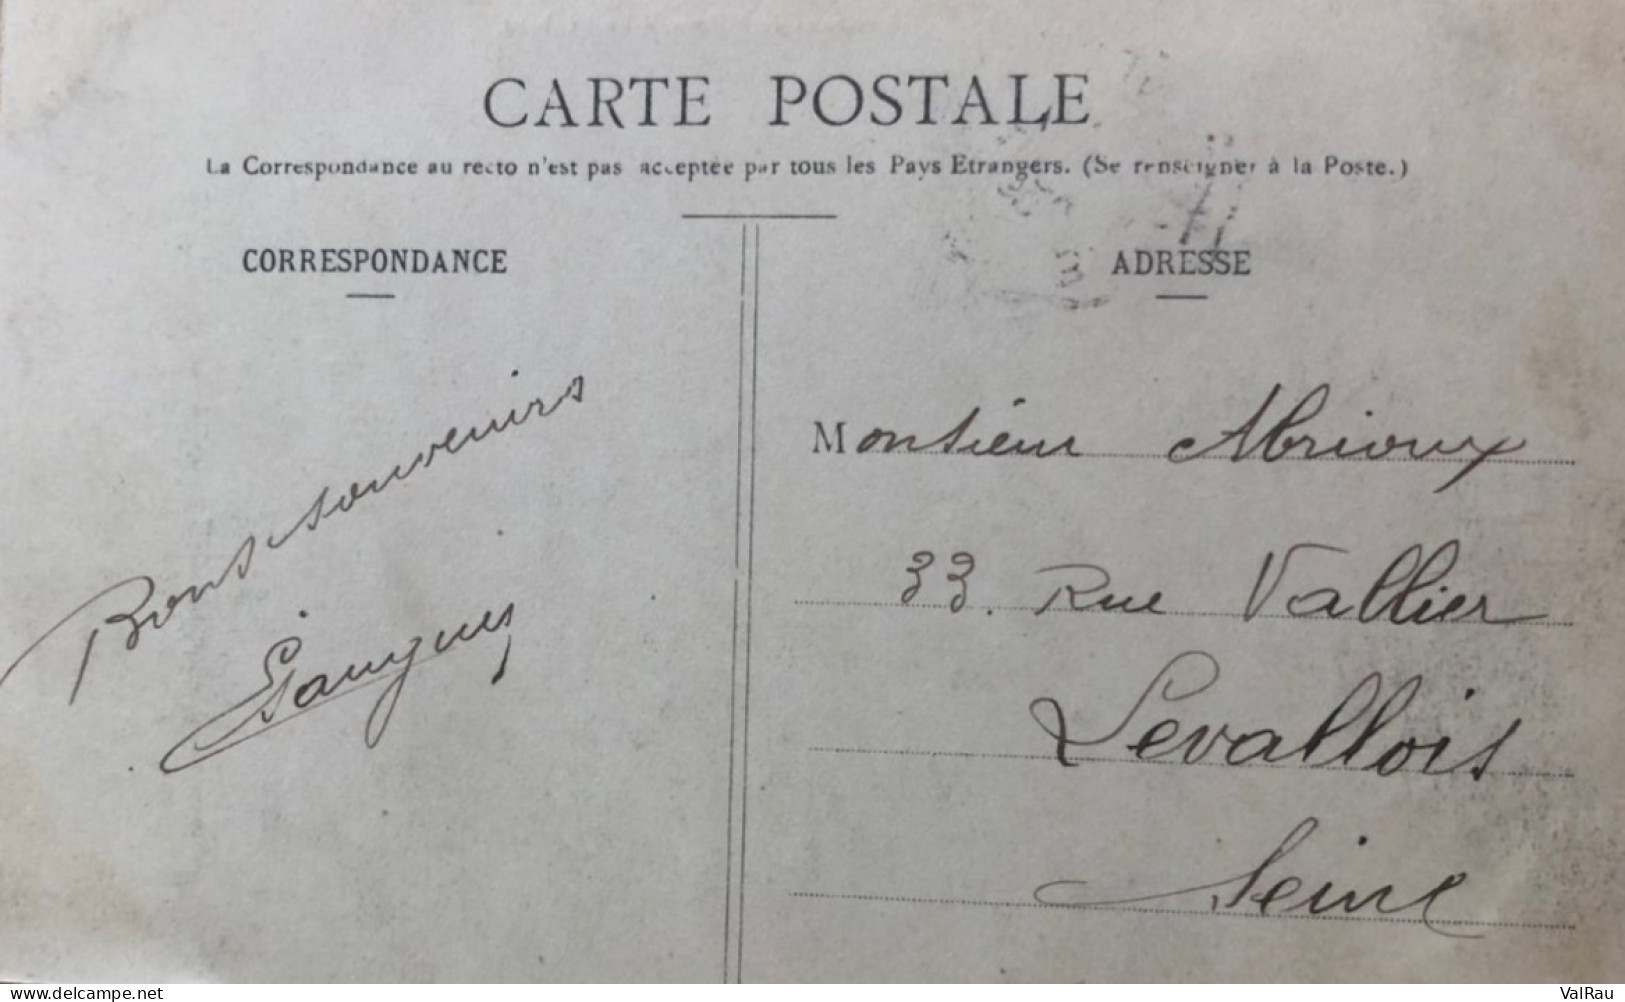 CARTE POSTALE
La Correspondance au recto n'est pas acceptée par tous les Pays Etrangers. (Se renseigner à la Poste.)
CORRESPONDANCE
Bons souvenirs
ADRESSE
Monsieur Abrioux
33. Rue Vallier
Levallois
Seine
delcampe.net
ValRau